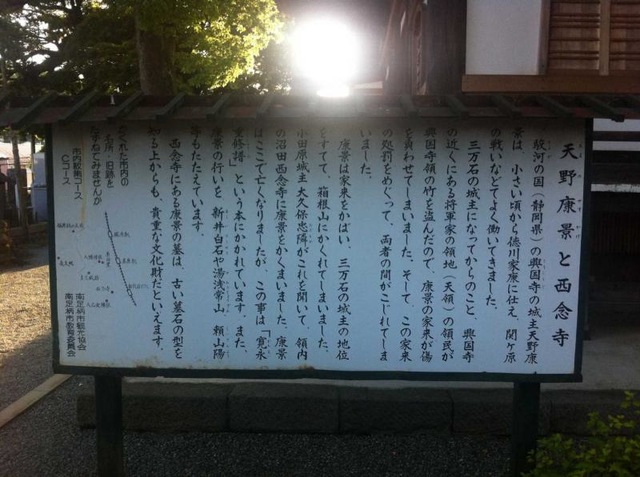 天野康景と西念寺
駿河の国（静岡県）の興国寺の城主天野康
景は、小さい頃から徳川家康に仕え、関ヶ原
の戦いなどでよく働いてきました。
三万石の城主になってからのこと、興国寺
の近くにある将軍家の領地（天領）の領民が
興国寺領の竹を盗んだので、康景の家来が傷
を負わせてしまいました。そして、この家来
の処罰をめぐって、両者の間がこじれてしま
いました。
康景は家来をかばい、三万石の城主の地位
をすてて、箱根山にかくれてしまいました。
小田原城主大久保忠隣がこれを聞いて、領内
の沼田西念寺に康景をかくまいました。康景
はここで亡くなりましたが、この事は「寛永
重修譜」という本にかかれています。また、
康景の行いを、新井白石や湯浅常山、頼山陽
等もたたえています。
西念寺にある康景の墓は、古い墓石の型を
知る上からも、貴重な文化財だといえます。
かくれた市内の
名所・旧跡を
たずねてみませんか
市内散策コース
Cコース
南足柄市観光協会
南足柄市教育委員会